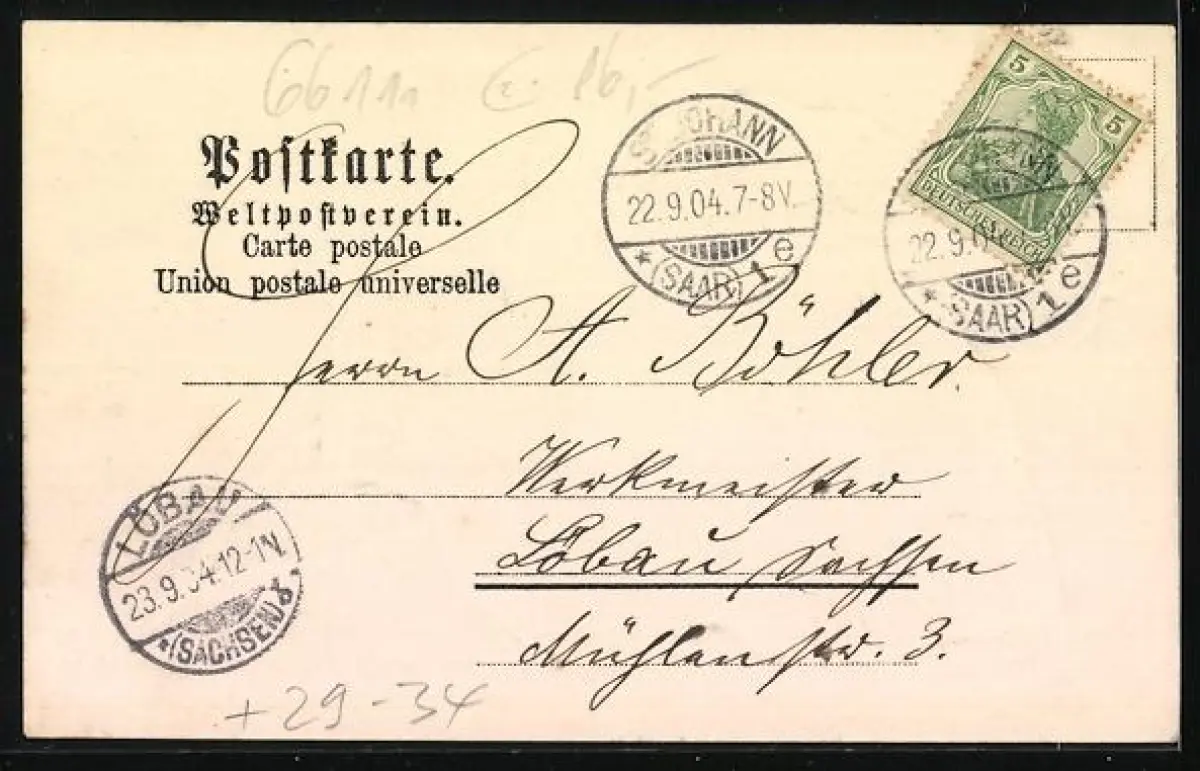 66111 € 16,-
Postkarte.
Weltpostverein.
Carte postale
Union postale universelle
ST. JOHANN
22.9.04.7-8V.
* (SAAR) 1 e
5 5
DEUTSCHES REICH
22.9.0
* (SAAR) 1 e
Herrn A. Böhler.
Werkmeister
Löbau Sachsen
Mühlenstr. 3.
LÖBAU
23.9.04.12-1N.
* (SACHSEN)
+29-34